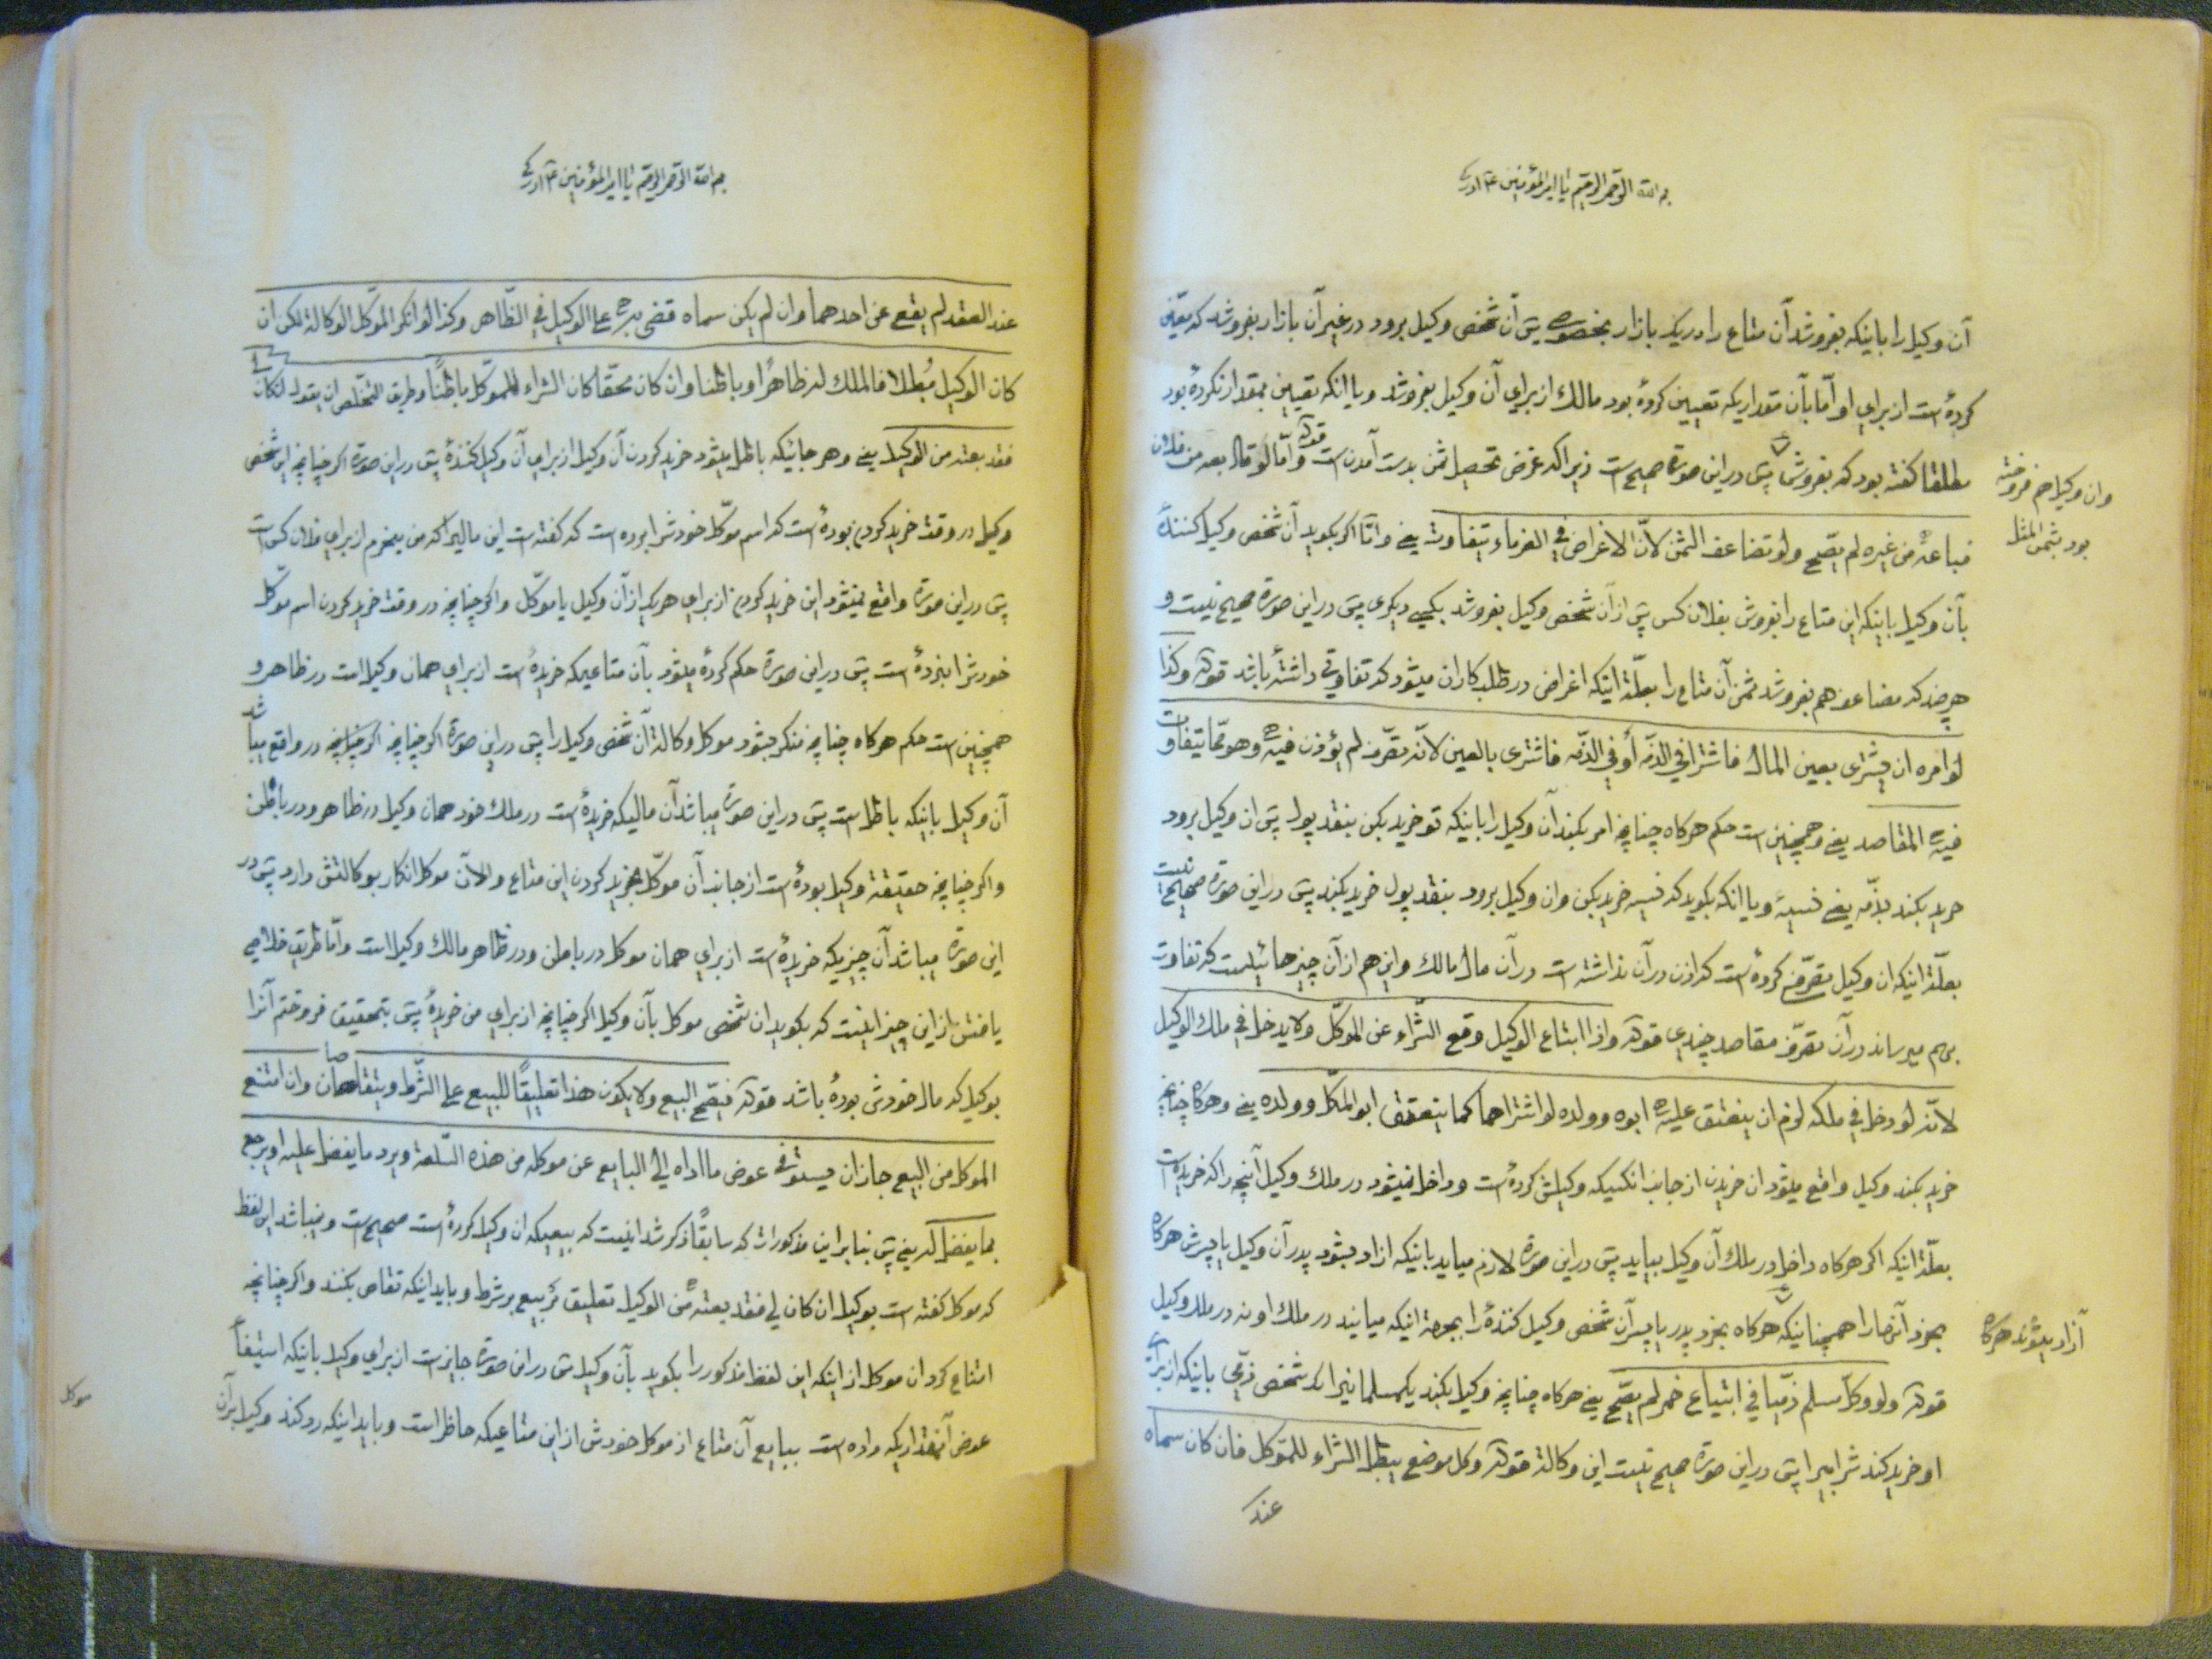 بسم الله الرحمن الرحیم یا امیر المؤمنین ع ادرکنی
آن وکیل را باینکه بفروشد آن متاع را در یک بازار بخصوصه پس آن شخص وکیل برود در غیر آن بازار بفروشد که معین
کرده است از برای او اما بآن مقداریکه تعیین کرده بود مالک از برای آن وکیل بفروشد و یا انکه تعیین بمقدار نکرده بود
مطلقا کفته بود که بفروش پس در این صورة صحیح است زیرا که غرض تحصیل ثمن بدست آمدن است قوله و اما لو قال بعه من فلان
وان وکیل هم فروخته
بود بثمن المثل
فباعه من غیره لم یصح ولو تضاعف الثمن لان الاغراض فی الغرماء یتفاوت یعنی و اما اکر بکوید آن شخص وکیل کننده
بآن وکیل باینکه این متاع را بفروش بفلان کس پس از آن شخص وکیل بفروشد بکسی دیکری پس در این صورة صحیح نیست و
هر چند که مضاعف هم بفروشد ثمن آن متاع را بعلة اینکه اغراض در طلبکاران میشود که تفاوتی داشته باشد قوله وکذا
لو امره ان یشتری بعین المال فاشتراه فی الذمه أو فی الذمه فاشتری بالعین لانه تصرف لم یؤذن فیه وهو مما یتفاوت
فیه المقاصد یعنی و همچنین است حکم هرکاه چنانچه امر بکند آن وکیل را باینکه تو خرید بکن بنقد پول پس ان وکیل برود
خرید بکند بذمه یعنی نسیه و یا انکه بکوید که نسیه خرید بکن وان وکیل برود بنقد پول خرید بکند پس در این صورة صحیح نیست
بعلة اینکه ان وکیل تصرف کرده است که اذن در آن نداشته است در آن مال مالک و این هم از آن چیزهائیست که تفاوت
بهم میرساند در آن تصرف مقاصد چندی قوله واذا ابتاع الوکیل وقع الشراء عن الموکل ولا یدخل فی ملک الوکیل
لانه لو دخل فی ملکه لزم ان ینعتق علیه ابوه وولده لو اشتراهما کما ینعتق ابو الموکل وولده یعنی و هرکاه چنانچه
خرید بکند وکیل واقع میشود ان خریدن از جانب انکسیکه وکیلش کرده است و داخل نمیشود در ملک وکیل آنچه را که خریده است
بعلة اینکه اکر هرکاه داخل در ملک آن وکیل بیاید پس در این صورة لازم میاید باینکه ازاد بشود پدر آن وکیل یا پسرش هرکاه
بخرد آنها را همچنانیکه هرکاه بخرد پدر یا پسر آن شخص وکیل کننده را بجهة اینکه میایند در ملک او نه در ملک وکیل
آزاد میشوند هرکاه
قوله ولو وکل مسلم ذمیا فی ابتیاع خمر لم یصح یعنی هرکاه چنانچه وکیل بکند یکمسلمانی را که شخص ذمی باینکه از برای
او خرید کند شرابی را پس در این صورة صحیح نیست این وکالة قوله وکل موضع یبطل الشراء للموکل فان کان سماه
عند
بسم الله الرحمن الرحیم یا امیر المؤمنین ع ادرکنی
عند العقد لم یقع عن احدهما وان لم یکن سماه قضی به علی الوکیل فی الظاهر وکذا لو انکر الموکل الوکالة لکن ان
کان الوکیل مبطلا فالملک له ظاهرا وباطنا وان کان محقا کان الشراء للموکل باطنا وطریق التخلص ان یقول ان کان لی
فقد بعته من الوکیل یعنی و هر جائیکه باطل میشود خرید کردن آن وکیل از برای آن وکیل کننده پس در این صورة اکر چنانچه این شخص
وکیل در وقت خرید کردن بوده است که اسم موکل خودش را برده است که کفته است این مالی را که من میخرم از برای فلان کس است
پس در این صورة واقع نمیشود این خرید کردن از برای هر یک از آن وکیل یا موکل و اکر چنانچه در وقت خرید کردن اسم موکل
خودش را نبرده است پس در این صورة حکم کرده میشود بآن متاعیکه خریده است از برای همان وکیل است در ظاهر و
همچنین است حکم هرکاه چنانچه منکر بشود موکل وکالة آن شخص وکیل را پس در این صورة اکر چنانچه اکر چنانچه در واقع میباشد
آن وکیل باینکه باطل است پس در این صورة میباشد آن مالیکه خریده است در ملک خود همان وکیل در ظاهر و در باطن
و اکر چنانچه حقیقة وکیل بوده است از جانب آن موکل بخرید کردن این متاع و الآن موکل انکار بوکالتش دارد پس در
این صورة میباشد آن چیزیکه خریده است از برای همان موکل در باطن و در ظاهر مالک وکیل است و اما طریق خلاصی
یافتن از این چیز اینست که بکوید ان شخص موکل بآن وکیل اکر چنانچه از برای من خریده پس بتحقیق فروختم آنرا
بوکیل که مال خودش بوده باشد قوله فیصح البیع ولا یکون هذا تعلیقا للبیع علی الشرط ویتقاصان وان امتنع
الموکل من البیع جاز ان یستوفی عوض ما اداه الی البایع عن موکله من هذه السلعة ویرد ما یفضل علیه او یرجع
بما یفضل له یعنی پس بنا بر این مذکورات که سابقا ذکر شد اینست که بیعیکه ان وکیل کرده است صحیح است و نمیباشد این لفظ
که موکل کفته است بوکیل ان کان لی فقد بعته من الوکیل تعلیق بر بیع بر شرط و باید اینکه تقاص بکنند و اکر چنانچه
امتناع کرد ان موکل از اینکه این لفظ مذکور را بکوید بآن وکیل پس در این صورة جایز است از برای وکیل باینکه استیفاء
عوض آنمقداریکه داده است ببایع آن متاع از موکل خودش از این متاعیکه حاظر است و باید اینکه رد کند وکیل بر آن
موکل